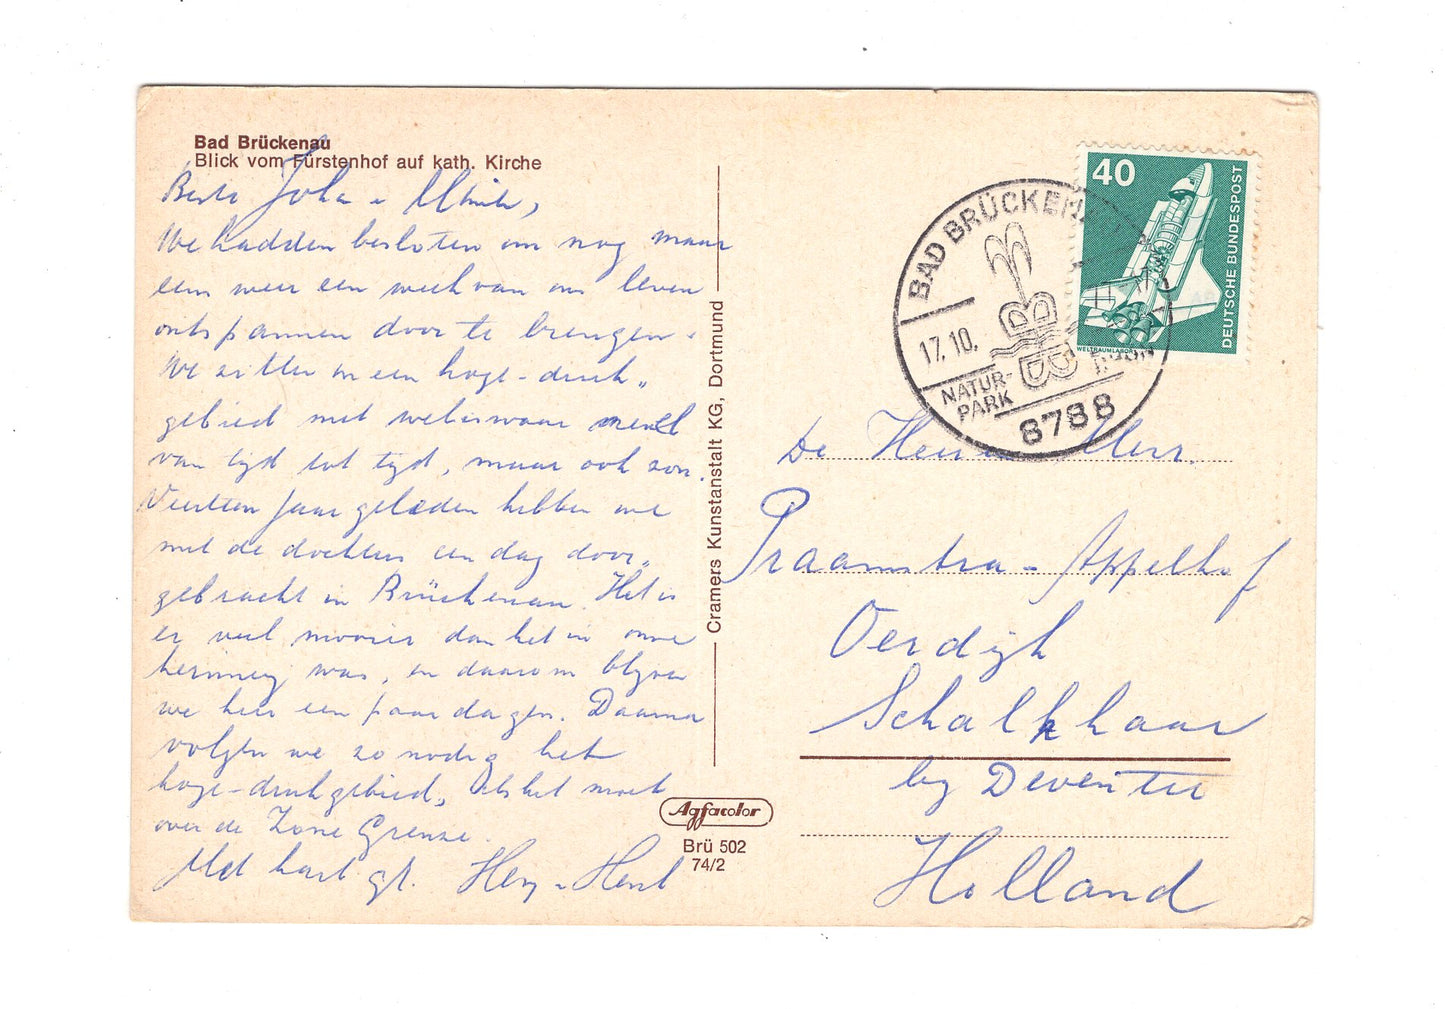 Bad Brückenau
Blick vom Fürstenhof auf kath. Kirche
Beste Joha
We hadden besloten om nog maar
eens weer een week van ons leven
ontspannen door te brengen.
We zitten in een hoge-druk„
gebied met weliswaar nevel
van tijd tot tijd, maar ook zon.
Veertien jaar geleden hebben we
met de dochters een dag door„
gebracht in Brückenau. Het is
er veel mooier dan het in onze
herinnering was, en daarom blijven
we hier een paar dagen. Daarna
volgen we zo nodig het
hoge-drukgebied, als het moet
over de Zone Grenze.
Met hart. gr.
Cramers Kunstanstalt KG, Dortmund
Agfacolor
Brü 502
74/2
BAD BRÜCKENAU
17.10.
NATUR-
PARK
RHÖN
8788
40
DEUTSCHE BUNDESPOST
WELTRAUMLABOR
De Heer en Mevr.
Praamstra - Appelhof
Oerdijk
Schalkhaar
bij Deventer
Holland